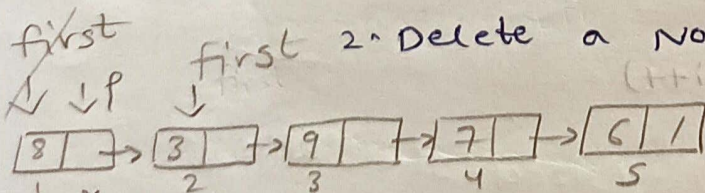 first
first 2. Delete a No
P
8 3 9 7 6 /
2 3 4 5